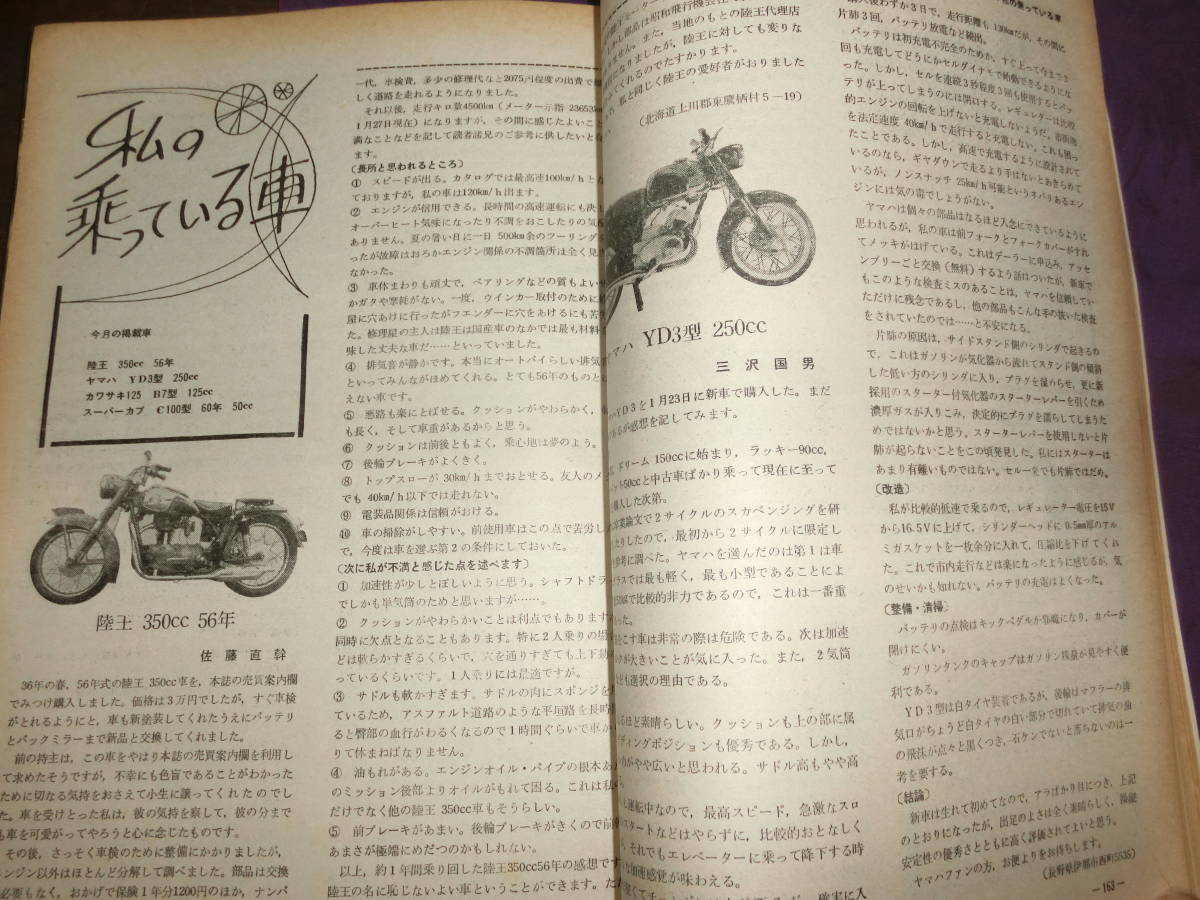 私の
乗っている車
今月の掲載車
陸王 350cc 56年
ヤマハ YD3型 250cc
カワサキ125 B7型 125cc
スーパーカブ C100型 60年 50cc
陸王 350cc 56年
佐藤直幹
36年の春,56年式の陸王 350cc車を,本誌の売買案内欄
でみつけ購入しました。価格は3万円でしたが,すぐ車検
がとれるようにと,車も新塗装してくれたうえにバッテリ
とバックミラーまで新品と交換してくれました。
前の持主は,この車をやはり本誌の売買案内欄を利用し
て求めたそうですが,不幸にも色盲であることがわかった
ために切なる気持をおさえて小生に譲ってくれたのでし
た。車を受けとった私は,彼の気持を察して,彼の分まで
も車を可愛がってやろうと心に念じたものです。
その後,さっそく車検のために整備にかかりましたが,
エンジン以外はほとんど分解して調べました。部品は交換
必要もなく,おかげで保険1年分1200円のほか,ナンバ
一代,車検費,多少の修理代など2075円程度の出費で
しく道路を走れるようになりました。
それ以後,走行キロ量4500km(メーター示指 23653km
1月27日現在)になりますが,その間に感じたよいこと
満なことなどを記して読者諸兄のご参考に供したいと
ます。
(長所と思われるところ)
① スピードが出る。カタログでは最高速100km/hと
ておりますが,私の車は120km/h出ます。
② エンジンが信用できる。長時間の高速運転にも決
オーバーヒート気味になったり不調をおこしたりの気
ありません。夏の暑い日に一日 500km余のツーリング
ったが故障はおろかエンジン関係の不調箇所は全く見
なかった。
③ 車体まわりも頑丈で,ベアリングなどの質もよい
かガタや摩耗がない。一度,ウインカー取付のために
屋に穴あけに行ったがフエンダーに穴をあけるにも苦
た。修理屋の主人は陸王は国産車のなかでは最も材料
味した丈夫な車だ……といっていました。
④ 排気音が静かです。本当にオートバイらしい排気
といってみんながほめてくれる。とても56年のものと
えない車です。
⑤ 悪路も楽にとばせる。クッションがやわらかく,
も長く,そして車重があるからと思う。
⑥ クッションは前後ともよく,乗心地は夢のよう。
⑦ 後輪ブレーキがよくきく。
⑧ トップスローが 30km/hまでおとせる。友人のメ
でも 40km/h以下では走れない。
⑨ 電装品関係は信頼がおける。
⑩ 車の掃除がしやすい。前使用車はこの点で苦労し
で,今度は車を選ぶ第2の条件にしておいた。
(次に私が不満と感じた点を述べます)
① 加速性が少しとぼしいように思う。シャフトドラ
でしかも単気筒のためと思いますが……。
② クッションがやわらかいことは利点でもあります
同時に欠点となることもあります。特に2人乗りの場
どは軟らかすぎるくらいで,穴を通りすぎても上下動
っているくらいです。1人乗りには最適ですが。
③ サドルも軟かすぎます。サドルの肉にスポンジを
ているため,アスファルト道路のような平垣路を長時
ると臀部の血行がわるくなるので1時間ぐらいで車か
りて休まねばなりません。
④ 油もれがある。エンジンオイル・パイプの根本あ
のミッション後部よりオイルがもれて困る。これは私
だけでなく他の陸王 350cc車もそうらしい。
⑤ 前ブレーキがあまい。後輪ブレーキがきくので前
あまさが極端にめだつのかもしれない。
以上,約1年間乗り回した陸王350cc56年の感想です
陸王の名に恥じないよい車ということができます。
部品は昭和飛行機会社
ません。また,当地のもとの陸王代理店
になりましたが,陸王に対しても変りな
てくれるのでたすかります。
私と同じく陸王の愛好者がおりました
(北海道上川郡東鷹栖村5—19)
ヤマハ YD3型 250cc
三沢国男
YD3を1月23日に新車で購入した。まだ
あるが感想を記してみます。
ドリーム 150ccに始まり,ラッキー90cc,
50ccと中古車ばかり乗って現在に至って
購入した次第。
業論文で2サイクルのスカベンジングを研
たりしたので,最初から2サイクルに限定し
参考に調べた。ヤマハを選んだのは第1は車
ラスでは最も軽く,最も小型であることによ
kgで比較的非力であるので,これは一番重
った。
こす車は非常の際は危険である。次は加速
クが大きいことが気に入った。また,2気筒
も選択の理由である。
るほど素晴らしい。クッションも上の部に属
ディングポジションも優秀である。しかし,
がやや広いと思われる。サドル高もやや高
し運転中なので,最高スピード,急激なスロ
スタートなどはやらずに,比較的おとなしく
それでもエレベーターに乗って降下する時
な加速感覚が味わえる。
の乗っている車
購入後わずか3日で,走行距離も 130kmだが,その間に
片肺3回,バッテリ放電など続出。
バッテリは初充電不完全のためか,すぐ上って今までに
回も充電してどうにかセルダイナモで始動できるようにな
った。しかし,セルを連続3秒程度3回も使用するとバッ
テリが上ってしまうのには閉口する。レギュレーターは比較
的エンジンの回転を上げないと充電しないようだ。市街地
を法定速度 40km/hで走行すると充電しない。これも困っ
たことである。しかし,高速で充電するように設計されて
いるのなら,ギヤダウンで走るより手はないとあきらめて
いるが,ノンスナッチ 25km/h可能というネバリあるエン
ジンには気の毒でしょうがない。
ヤマハは個々の部品はなるほど入念にできているように
思われるが,私の車は前フォークとフォークカバーがすれ
てメッキがはげている。これはデーラーに申込み,アッセ
ンブリーごと交換(無料)するよう話はついたが,新車で
もこのような検査ミスのあることは,ヤマハを信頼してい
ただけに残念であるし,他の部品もこんな手の抜いた検査
をされていたのでは……と不安になる。
片肺の原因は,サイドスタンド側のシリンダで起きるの
で,これはガソリンが気化器から流れてスタンド側の傾斜
した低い方のシリンダに入り,プラグを湿らのせ,更に新
採用のスターター付気化器のスターターレバーを引くため
濃厚ガスが入りこみ,決定的にプラグを濡らしてしまうた
めではないかと思う。スターターレバーを使用しないと片
肺が起らないことをこの頃発見した。私にはスターターは
あまり有難いものではない。セル一発でも片肺ではだめ。
(改造)
私が比較的低速で乗るので,レギュレーター電圧を15V
から16.5Vに上げて,シリンダーヘッドに 0.5mm厚のアル
ミガスケットを一枚余分に入れて,圧縮比を下げてくれ
た。これで市内走行などは楽になったように感じるが,気
のせいかも知れない。バッテリの充電はよくなった。
(整備・清掃)
バッテリの点検はキックペダルが邪魔になり,カバーが
開けにくい。
ガソリンタンクのキャップはガソリン残量が見やすく便
利である。
YD3型は白タイヤ装着であるが,後輪はマフラーの排
気口がちょうど白タイヤの白い部分で切れていて排気の油
の飛沫が点々と黒くつき,石ケンでないと落ちないのは一
考を要する。
(結論)
新車は生れて初めてなので,アラばかり目につき,上記
のとおりになったが,出足のよさは全く素晴らしく,操縦
安定性の優秀さとともに高く評価されてよいと思う。
ヤマハファンの方,お便りをお待ちします。
(長野県伊那市西町5535)
—163—